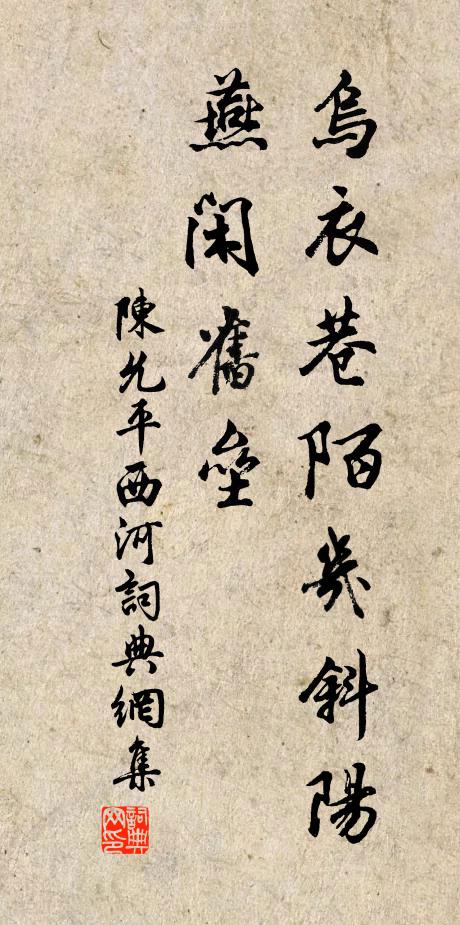 烏衣巷陌幾斜陽
燕閑舊壘
陳允平西河詞典網集
詞典网印